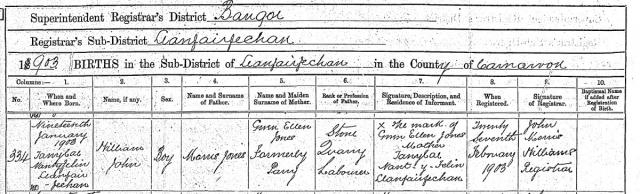 Superintendent Registrar's District Bangor
Registrar's Sub-District Llanfairfechan
1903 BIRTHS in the Sub-District of Llanfairfechan in the County of Carnarvon
Columns:— 1. 2. 3. 4. 5. 6. 7. 8. 9. 10.
No. When and Where Born. Name, if any. Sex. Name and Surname of Father. Name and Maiden Surname of Mother. Rank or Profession of Father. Signature, Description, and Residence of Informant. When Registered. Signature of Registrar. Baptismal Name if added after Registration of Birth.
334
Nineteenth
January
1903
Tanybal
Nantyfelin
Llanfair
fechan
William
John
Boy
Morris Jones
Ellen
Jones
Formerly
Parry
Stone
Quarry
Labourer
X The mark of
Ellen Jones
Mother
Tanybal
Nant-y-felin
Llanfairfechan
Twenty
Seventh
February
1903
John
Morris
Williams
Registrar